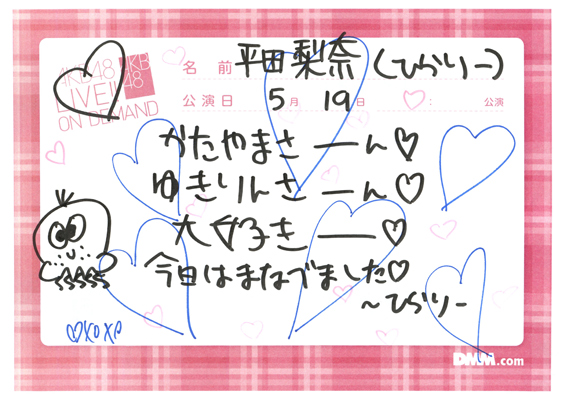 AKB48
LIVE!!
ON DEMAND
AKB
48
名前 平田梨奈(ひらりー)
公演日 5月 19日 : 公演
かたやまさーん♡
ゆきりんさーん♡
大好きー♡
今日はまなびました♡
〜ひらりー
♡xoxo
DMM.com